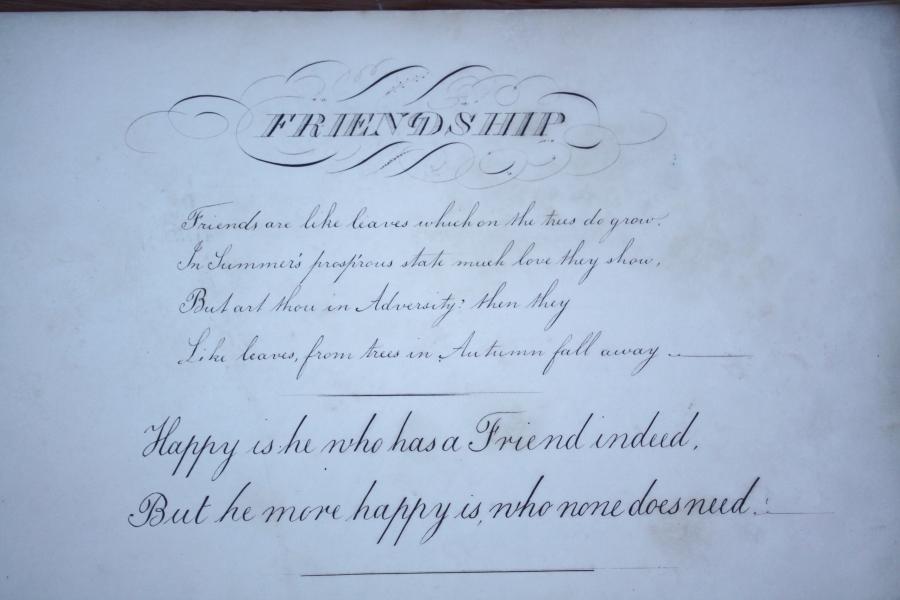 FRIENDSHIP
Friends are like leaves which on the trees do grow.
In Summer's prosp'rous state much love they show,
But art thou in Adversity? then they
Like leaves, from trees in Autumn fall away
Happy is he who has a Friend indeed,
But he more happy is, who none does need.